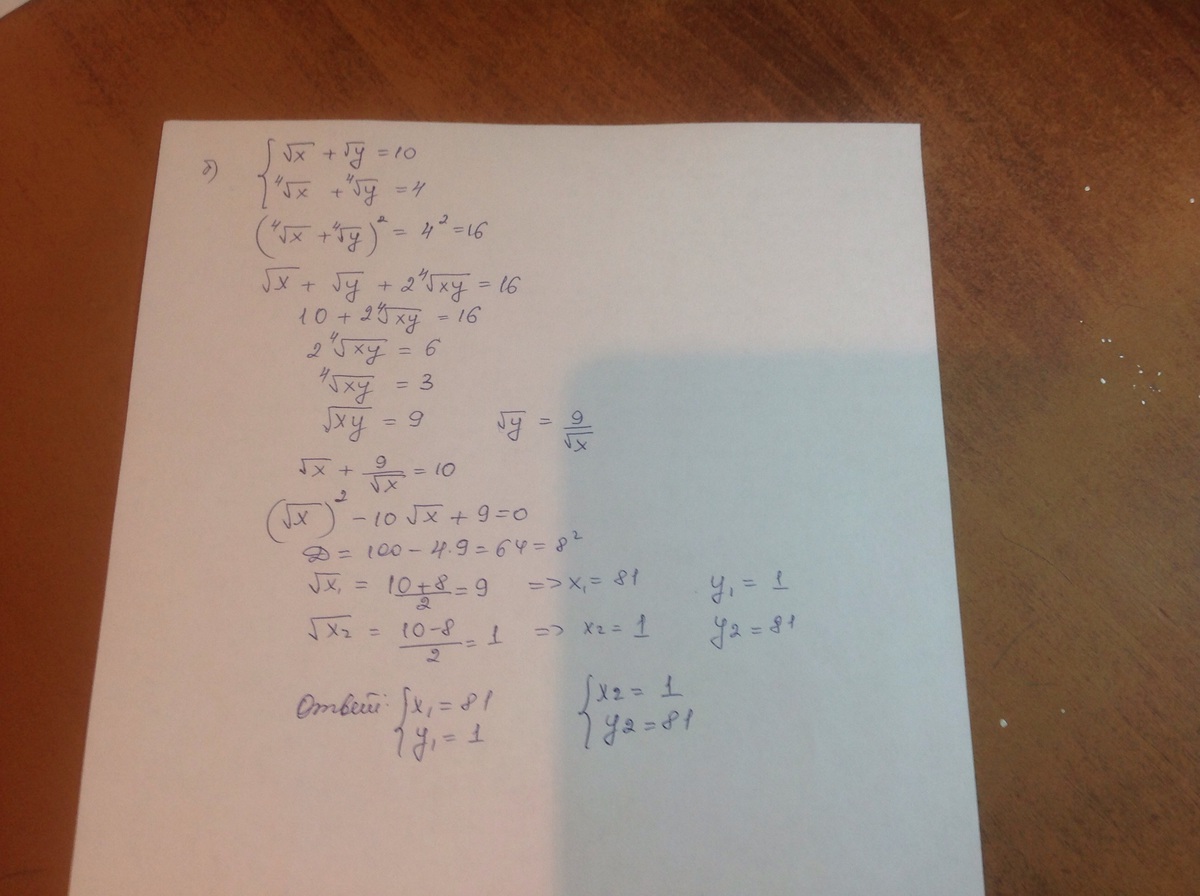 б) { √x + √y = 10
⁴√x + ⁴√y = 4
(⁴√x + ⁴√y)² = 4² = 16
√x + √y + 2⁴√xy = 16
10 + 2⁴√xy = 16
2⁴√xy = 6
⁴√xy = 3
√xy = 9 √y = 9/√x
√x + 9/√x = 10
(√x)² - 10√x + 9 = 0
D = 100 - 4·9 = 64 = 8²
√x₁ = (10+8)/2 = 9 => x₁ = 81 y₁ = 1
√x₂ = (10-8)/2 = 1 => x₂ = 1 y₂ = 81
Ответ: { x₁ = 81 { x₂ = 1
y₁ = 1 y₂ = 81